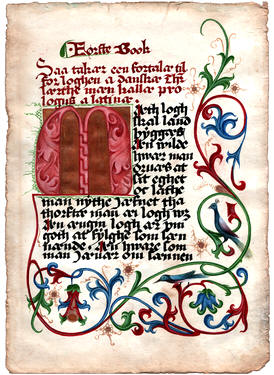 Eorste Book
Saa takar een fortalar til
for loghen a danskæ thi
lærthe man kallar pro
logus a latinæ:
Mæth logh
skal land
byggæs
æn wilde
hwar man
orvæs at
sit eghet
oc latæ
man nythe iafnet tha
thorfte man æi logh wz
æn ængin logh ær jm
goth at fylghe som sæn
nænde. æn hware som
man iævær om sannen